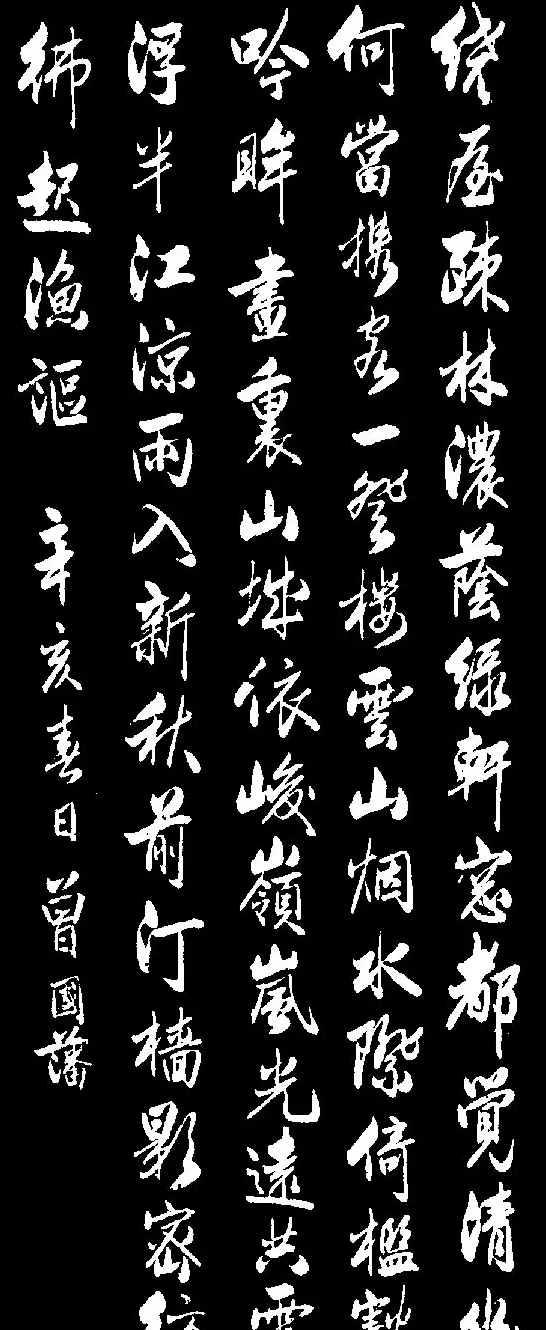 绕屋疎林濃蔭綠軒窓都覺清幽
何當携客一登樓雲山烟水際倚檻豁
吟眸畫裏山城依峻嶺嵐光遠共雲
浮半江涼雨入新秋前汀檣影密
彿起漁謳 辛亥春日曾國藩